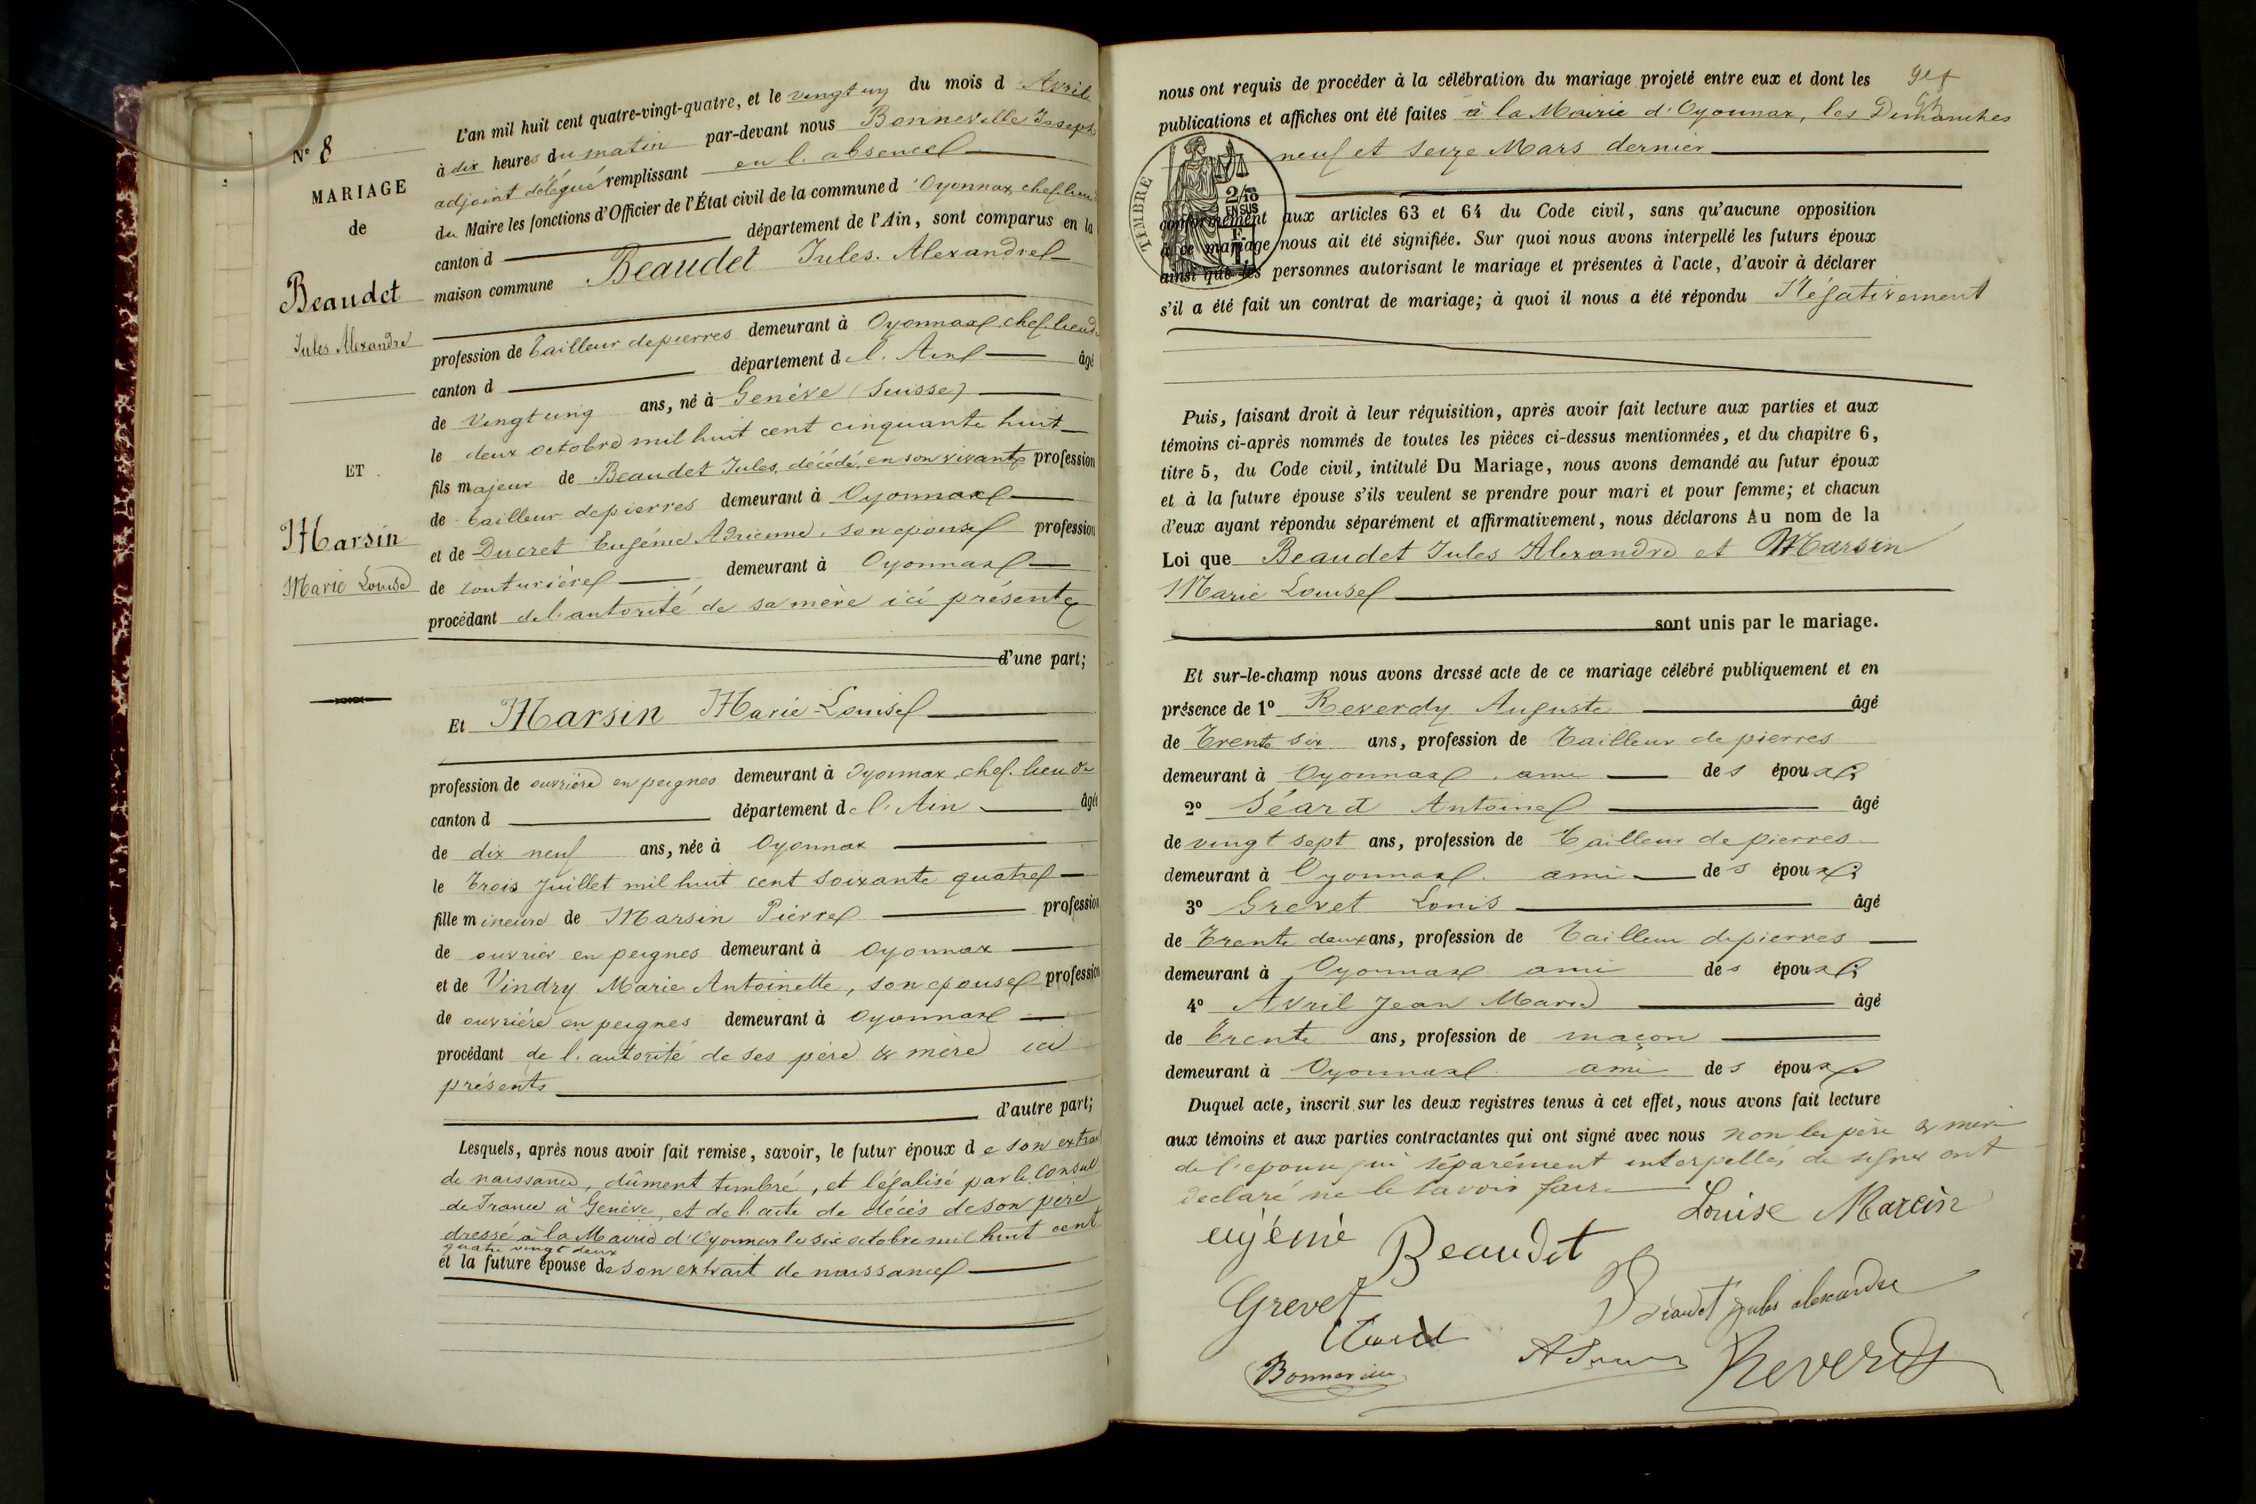 N° 8
MARIAGE
de
Beaudet
Jules Alexandre
ET
Marsin
Marie Louise
L'an mil huit cent quatre-vingt-quatre, et le vingt un du mois d'Avril
à dix heures du matin par-devant nous Bonneville Joseph
adjoint délégué remplissant en l'absence
du Maire les fonctions d'Officier de l'État civil de la commune d'Oyonnax, chef lieu
canton d département de l'Ain, sont comparus en la
maison commune Beaudet Jules Alexandre
profession de Tailleur de pierres demeurant à Oyonnax, chef lieu de
canton d département de l'Ain âgé
de Vingt cinq ans, né à Genève (Suisse)
le deux octobre mil huit cent cinquante huit
fils majeur de Beaudet Jules, décédé, en son vivant profession
de tailleur de pierres demeurant à Oyonnax
et de Ducret Eugénie Adrienne, son épouse profession
de couturière demeurant à Oyonnax
procédant de l'autorité de sa mère ici présente
d'une part;
Et Marsin Marie-Louise
profession de ouvrière en peignes demeurant à Oyonnax, chef-lieu de
canton d département de l'Ain âgée
de dix neuf ans, née à Oyonnax
le Trois Juillet mil huit cent soixante quatre
fille mineure de Marsin Pierre profession
de ouvrier en peignes demeurant à Oyonnax
et de Vindry Marie Antoinette, son épouse profession
de ouvrière en peignes demeurant à Oyonnax
procédant de l'autorité de ses père & mère ici
présents
d'autre part;
Lesquels, après nous avoir fait remise, savoir, le futur époux de son extrait
de naissance, dûment timbré, et légalisé par le Consul
de France à Genève, et de l'acte de décès de son père
dressé à la Mairie d'Oyonnax le six octobre mil huit cent
quatre vingt deux
et la future épouse de son extrait de naissance
nous ont requis de procéder à la célébration du mariage projeté entre eux et dont les
publications et affiches ont été faites à la Mairie d'Oyonnax, les Dimanches
neuf et seize Mars dernier
TIMBRE
2/10
EN SUS
conformément aux articles 63 et 64 du Code civil, sans qu'aucune opposition
à ce mariage nous ait été signifiée. Sur quoi nous avons interpellé les futurs époux
ainsi que les personnes autorisant le mariage et présentes à l'acte, d'avoir à déclarer
s'il a été fait un contrat de mariage; à quoi il nous a été répondu Négativement
Puis, faisant droit à leur réquisition, après avoir fait lecture aux parties et aux
témoins ci-après nommés de toutes les pièces ci-dessus mentionnées, et du chapitre 6,
titre 5, du Code civil, intitulé Du Mariage, nous avons demandé au futur époux
et à la future épouse s'ils veulent se prendre pour mari et pour femme; et chacun
d'eux ayant répondu séparément et affirmativement, nous déclarons Au nom de la
Loi que Beaudet Jules Alexandre et Marsin
Marie Louise
sont unis par le mariage.
Et sur-le-champ nous avons dressé acte de ce mariage célébré publiquement et en
présence de 1° Reverdy Auguste âgé
de Trente six ans, profession de Tailleur de pierres
demeurant à Oyonnax, ami des époux;
2° Séard Antoine âgé
de vingt sept ans, profession de Tailleur de pierres
demeurant à Oyonnax ami des époux;
3° Grevet Louis âgé
de Trente deux ans, profession de Tailleur de pierres
demeurant à Oyonnax ami des époux;
4° Avril Jean Marie âgé
de Trente ans, profession de maçon
demeurant à Oyonnax ami des époux
Duquel acte, inscrit sur les deux registres tenus à cet effet, nous avons fait lecture
aux témoins et aux parties contractantes qui ont signé avec nous non les père & mère
de l'épouse qui séparément interpellés de signer ont
déclaré ne le savoir faire
Louise Marcin
eujénie Beaudet
Grevet
Beaudet jules alexandre
Reverdy